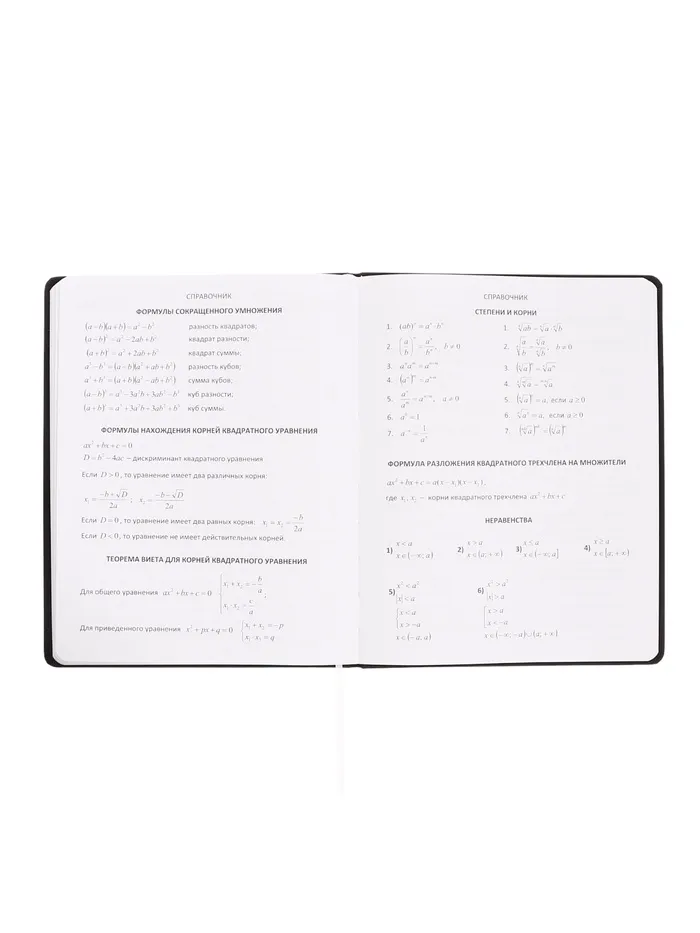 СПРАВОЧНИК
ФОРМУЛЫ СОКРАЩЕННОГО УМНОЖЕНИЯ
(a−b)(a+b)=a²−b² разность квадратов;
(a−b)²=a²−2ab+b² квадрат разности;
(a+b)²=a²+2ab+b² квадрат суммы;
a³−b³=(a−b)(a²+ab+b²) разность кубов;
a³+b³=(a+b)(a²−ab+b²) сумма кубов,
(a−b)³=a³−3a²b+3ab²−b³ куб разности;
(a+b)³=a³+3a²b+3ab²+b³ куб суммы.
ФОРМУЛЫ НАХОЖДЕНИЯ КОРНЕЙ КВАДРАТНОГО УРАВНЕНИЯ
ax²+bx+c=0
D=b²−4ac − дискриминант квадратного уравнения
Если D>0, то уравнение имеет два различных корня:
x₁=(−b+√D)/2a ; x₂=(−b−√D)/2a
Если D=0, то уравнение имеет два равных корня: x₁=x₂=−b/2a
Если D<0, то уравнение не имеет действительных корней.
ТЕОРЕМА ВИЕТА ДЛЯ КОРНЕЙ КВАДРАТНОГО УРАВНЕНИЯ
Для общего уравнения ax²+bx+c=0 {x₁+x₂=−b/a; x₁·x₂=c/a
Для приведенного уравнения x²+px+q=0 {x₁+x₂=−p x₁·x₂=q
СПРАВОЧНИК
СТЕПЕНИ И КОРНИ
1. (ab)ⁿ=aⁿ·bⁿ 1. ⁿ√ab=ⁿ√a·ⁿ√b
2. (a/b)ⁿ=aⁿ/bⁿ, b≠0 2. ⁿ√(a/b)=ⁿ√a/ⁿ√b, b≠0
3. aⁿaᵐ=aⁿ⁺ᵐ 3. (ⁿ√a)ᵐ=ⁿ√aᵐ
4. (aⁿ)ᵐ=aⁿᵐ 4.
5. aⁿ/aᵐ=aⁿ⁻ᵐ, a≠0 5. (ⁿ√a)ⁿ=a, если a≥0
6. a⁰=1 6. ⁿ√aⁿ=a, если a≥0
7. a⁻ⁿ=1/aⁿ 7.
ФОРМУЛА РАЗЛОЖЕНИЯ КВАДРАТНОГО ТРЕХЧЛЕНА НА МНОЖИТЕЛИ
ax²+bx+c=a(x−x₁)(x−x₂),
где x₁,x₂ − корни квадратного трехчлена ax²+bx+c
НЕРАВЕНСТВА
1) x<a 2) x>a 3) x≤a 4) x≥a
x∈(−∞;a) x∈(a;+∞) x∈(−∞;a] x∈[a;+∞)
5) x²<a² 6) x²>a²
|x|<a |x|>a
{x<a [x>a
{x>−a [x<−a
x∈(−a;a) x∈(−∞;−a)∪(a;+∞)